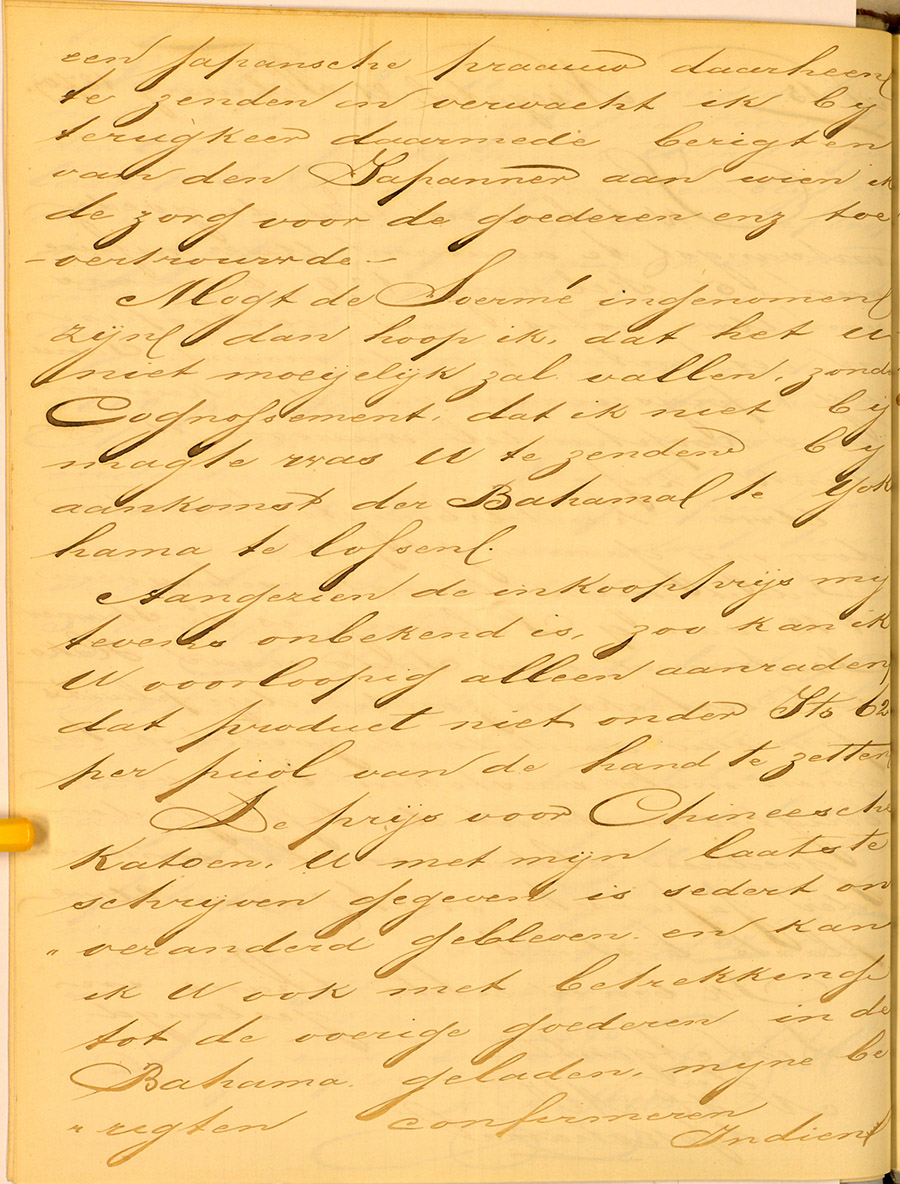 een Japansche praauw daarheen
te zenden en verwacht ik by
terugkeer daarmede berigten
van den Japanner aan wien ik
de zorg voor de goederen enz toe
-vertrouwde-
Mogt de Soermé ingenomen
zijn dan hoop ik, dat het U
niet moeyelyk zal vallen, zonder
Cognossement, dat ik niet bij
magte was U te zenden by
aankomst der Bahama te Yok
hama te lossen.
Aangezien de inkoopprijs mij
tevens onbekend is, zoo kan ik
U voorloopig alleen aanraden
dat product niet onder Itz 62
per picol van de hand te zetten
De prijs voor Chineesch
Katoen, U met mijn laatste
schrijven gegeven is sedert on
" veranderd gebleven en kan
ik U ook met betrekking
tot de overige goederen in de
Bahama geladen, myne be
" rigten confirmeren
Indien